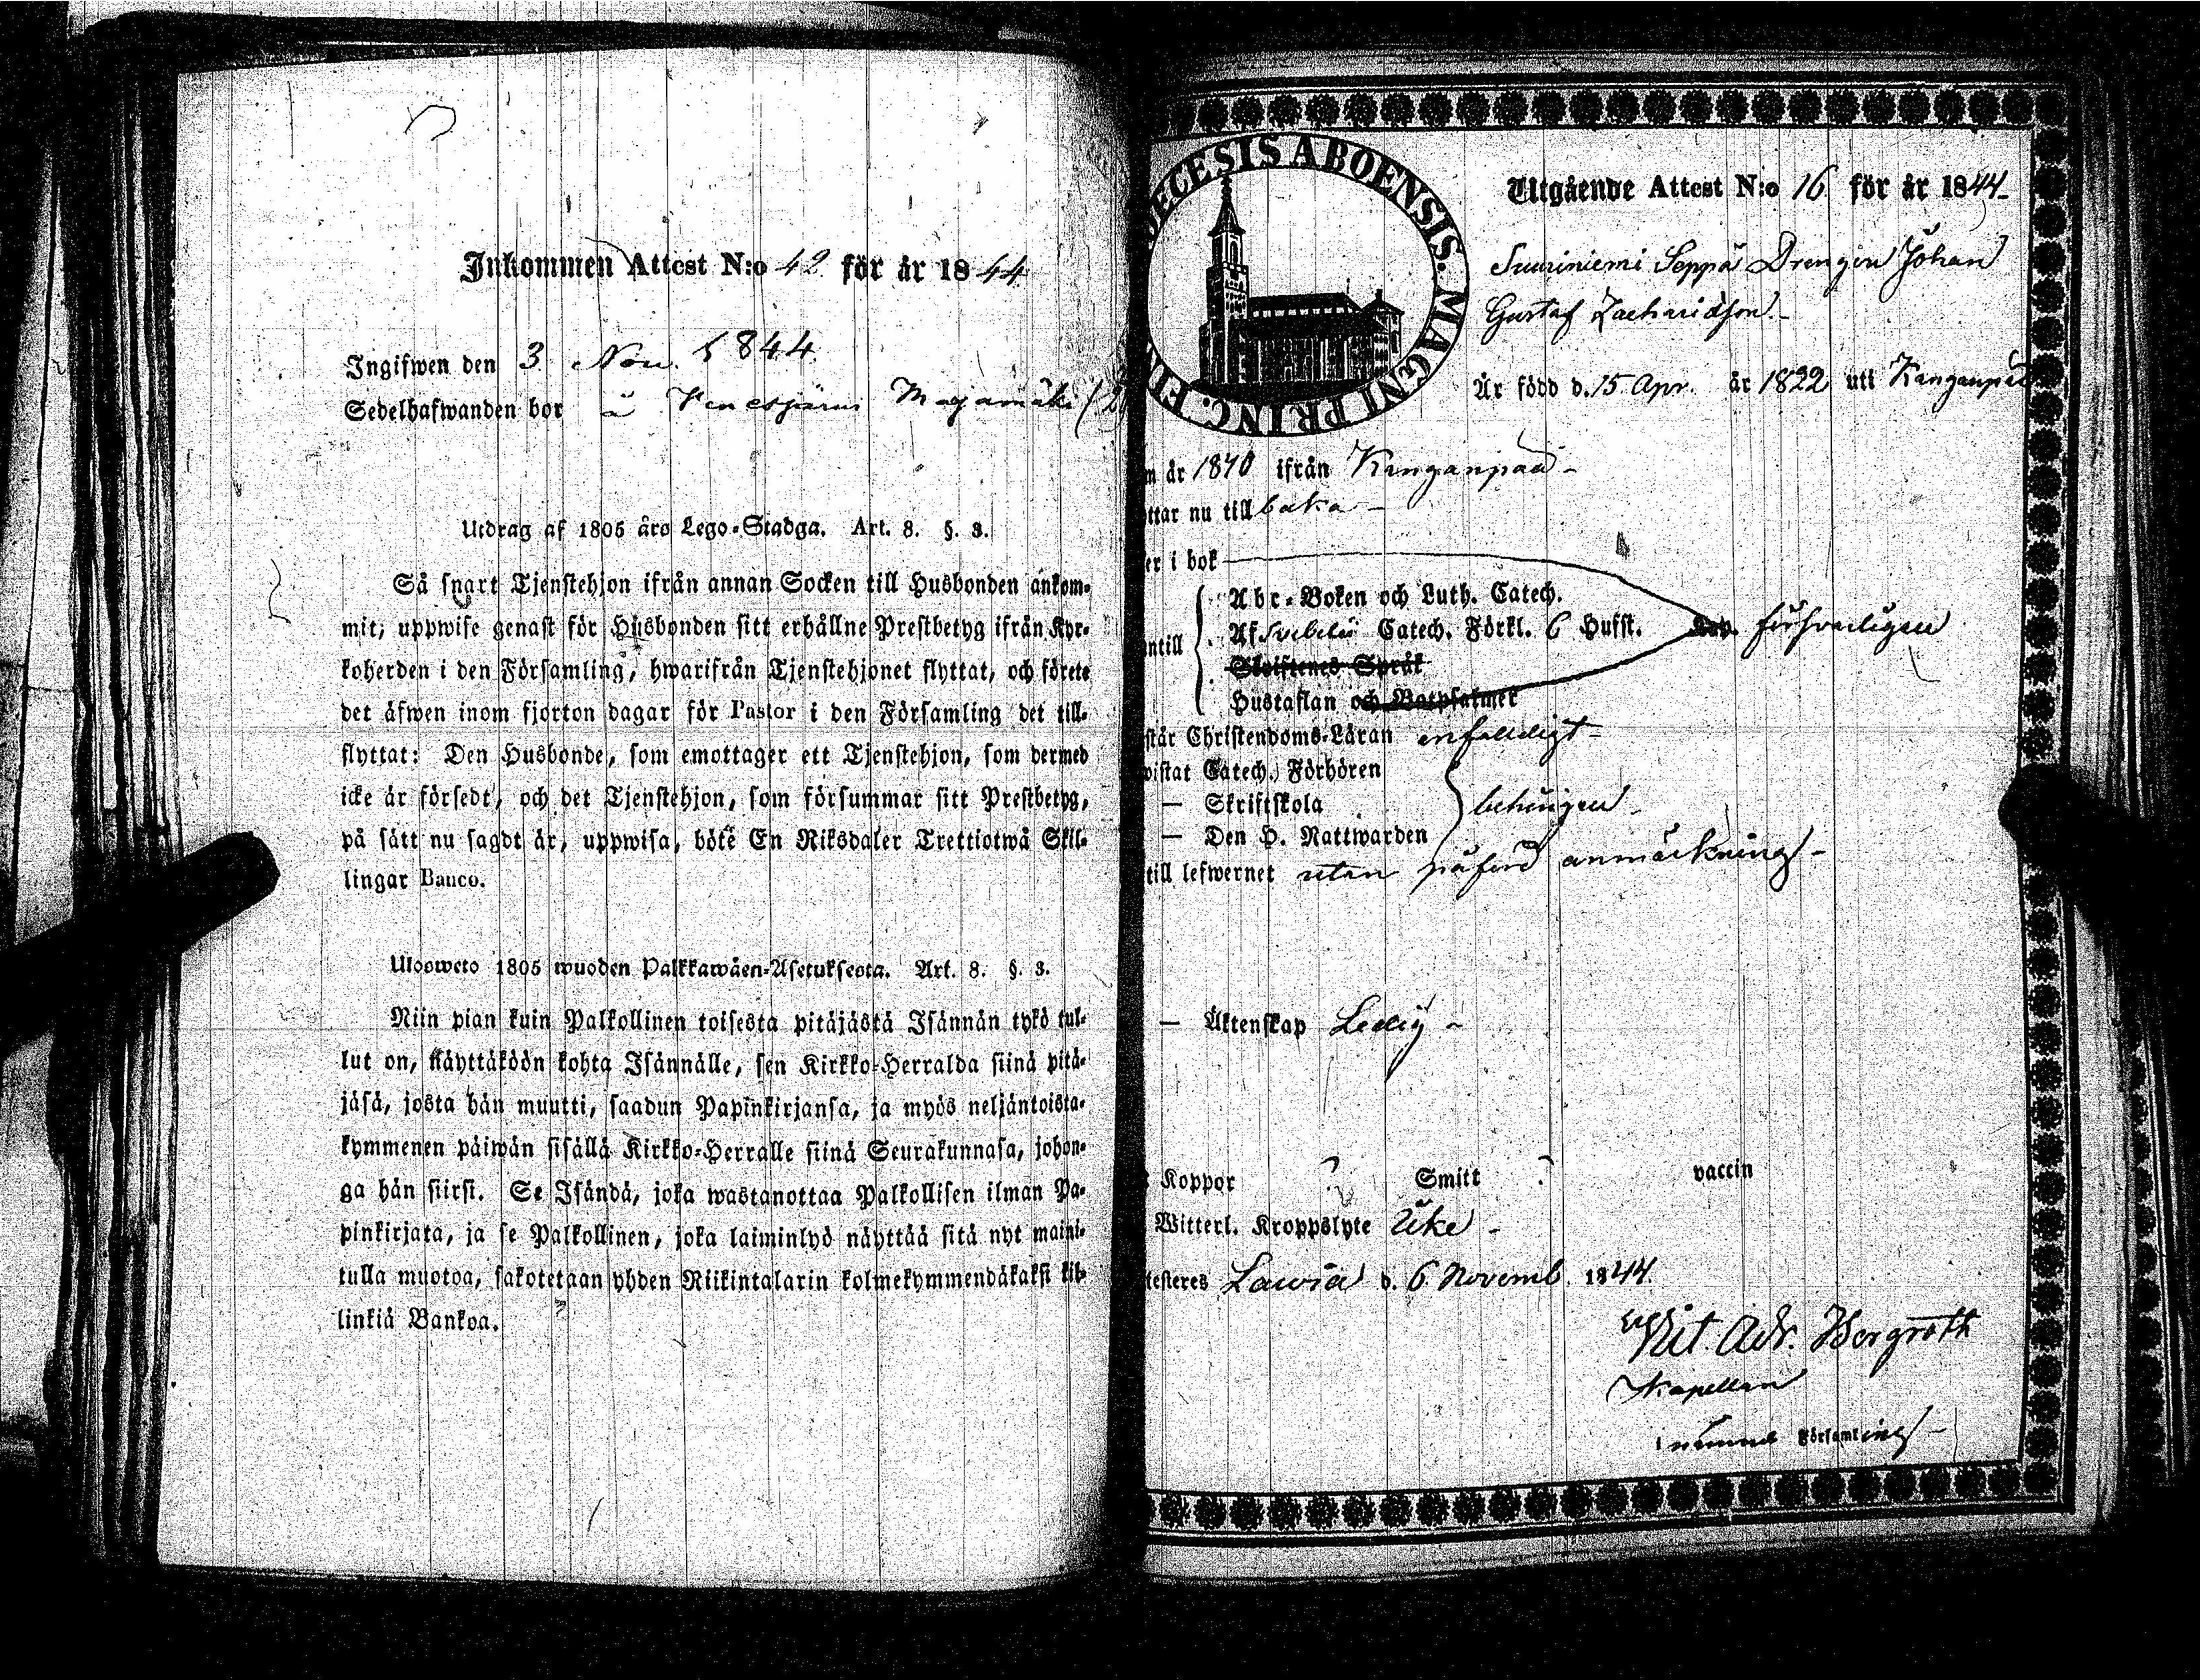 Inkommen Attest N:o 42 för år 1844
Ingifwen den 3 Nov. 1844.
Sedelhafwanden bor å Venesjärvi Majamäki
Utdrag af 1805 års Lego-Stadga. Art. 8. §. 3.
Så snart Tjenstehjon ifrån annan Socken till Husbonden ankom-
mit, uppwise genast för Husbonden sitt erhållne Prestbetyg ifrån Kyr-
koherden i den Församling, hwarifrån Tjenstehjonet flyttat, och förete
det äfwen inom fjorton dagar för Pastor i den Församling det till-
flyttat: Den Husbonde, som emottager ett Tjenstehjon, som dermed
icke är försedt, och det Tjenstehjon, som försummar sitt Prestbetyg,
på sätt nu sagdt är, uppwisa, böte En Riksdaler Trettiotwå Skil-
lingar Banco.
Ulosweto 1805 wuoden Palkkawäen-Asetuksesta. Art. 8. §. 3.
Niin pian kuin Palkollinen toisesta pitäjästä Isännän tykö tul-
lut on, näyttäköön kohta Isännälle, sen Kirkko-Herralda siinä pitä-
jäsä, josta hän muutti, saadun Papinkirjansa, ja myös neljäntoista-
kymmenen päiwän sisällä Kirkko-Herralle siinä Seurakunnasa, johon-
ga hän siirsi. Se Isändä, joka wastanottaa Palkollisen ilman Pa-
pinkirjata, ja se Palkollinen, joka laiminlyö näyttää sitä nyt maini-
tulla muotoa, sakotetaan yhden Riikintalarin kolmekymmendäkaksi kil-
linkiä Bankoa.
DIŒCESIS ABOENSIS. MAGNI PRINC. FIN
Utgående Attest N:o 16 för år 1844
Suuriniemi Seppä Drengen Johan
Gustaf Zachariasson
Är född d. 15 Apr. år 1822 uti Kanganpää
m år 1840 ifrån Kanganpää
ttar nu tillbaka
er i bok
Abr-Boken och Luth. Catech.
ntill Af Svebelii Catech. Förkl. 6 Hufst. försvarligen
Skriftenes Språk
Hustaflan och Botpsalmer
står Christendoms-Läran enfaldigt
wistat Catech. Förhören
— Skriftskola behörigen
— Den H. Nattwarden
till lefwernet utan påförd anmärkning
— Äktenskap Ledig
Koppor ? Smitt ? vaccin
Witterl. Kroppslyte Icke
testeres Lawia d. 6 Novemb. 1844.
Adr. Bergroth
Kapellan
i nämnde Församling